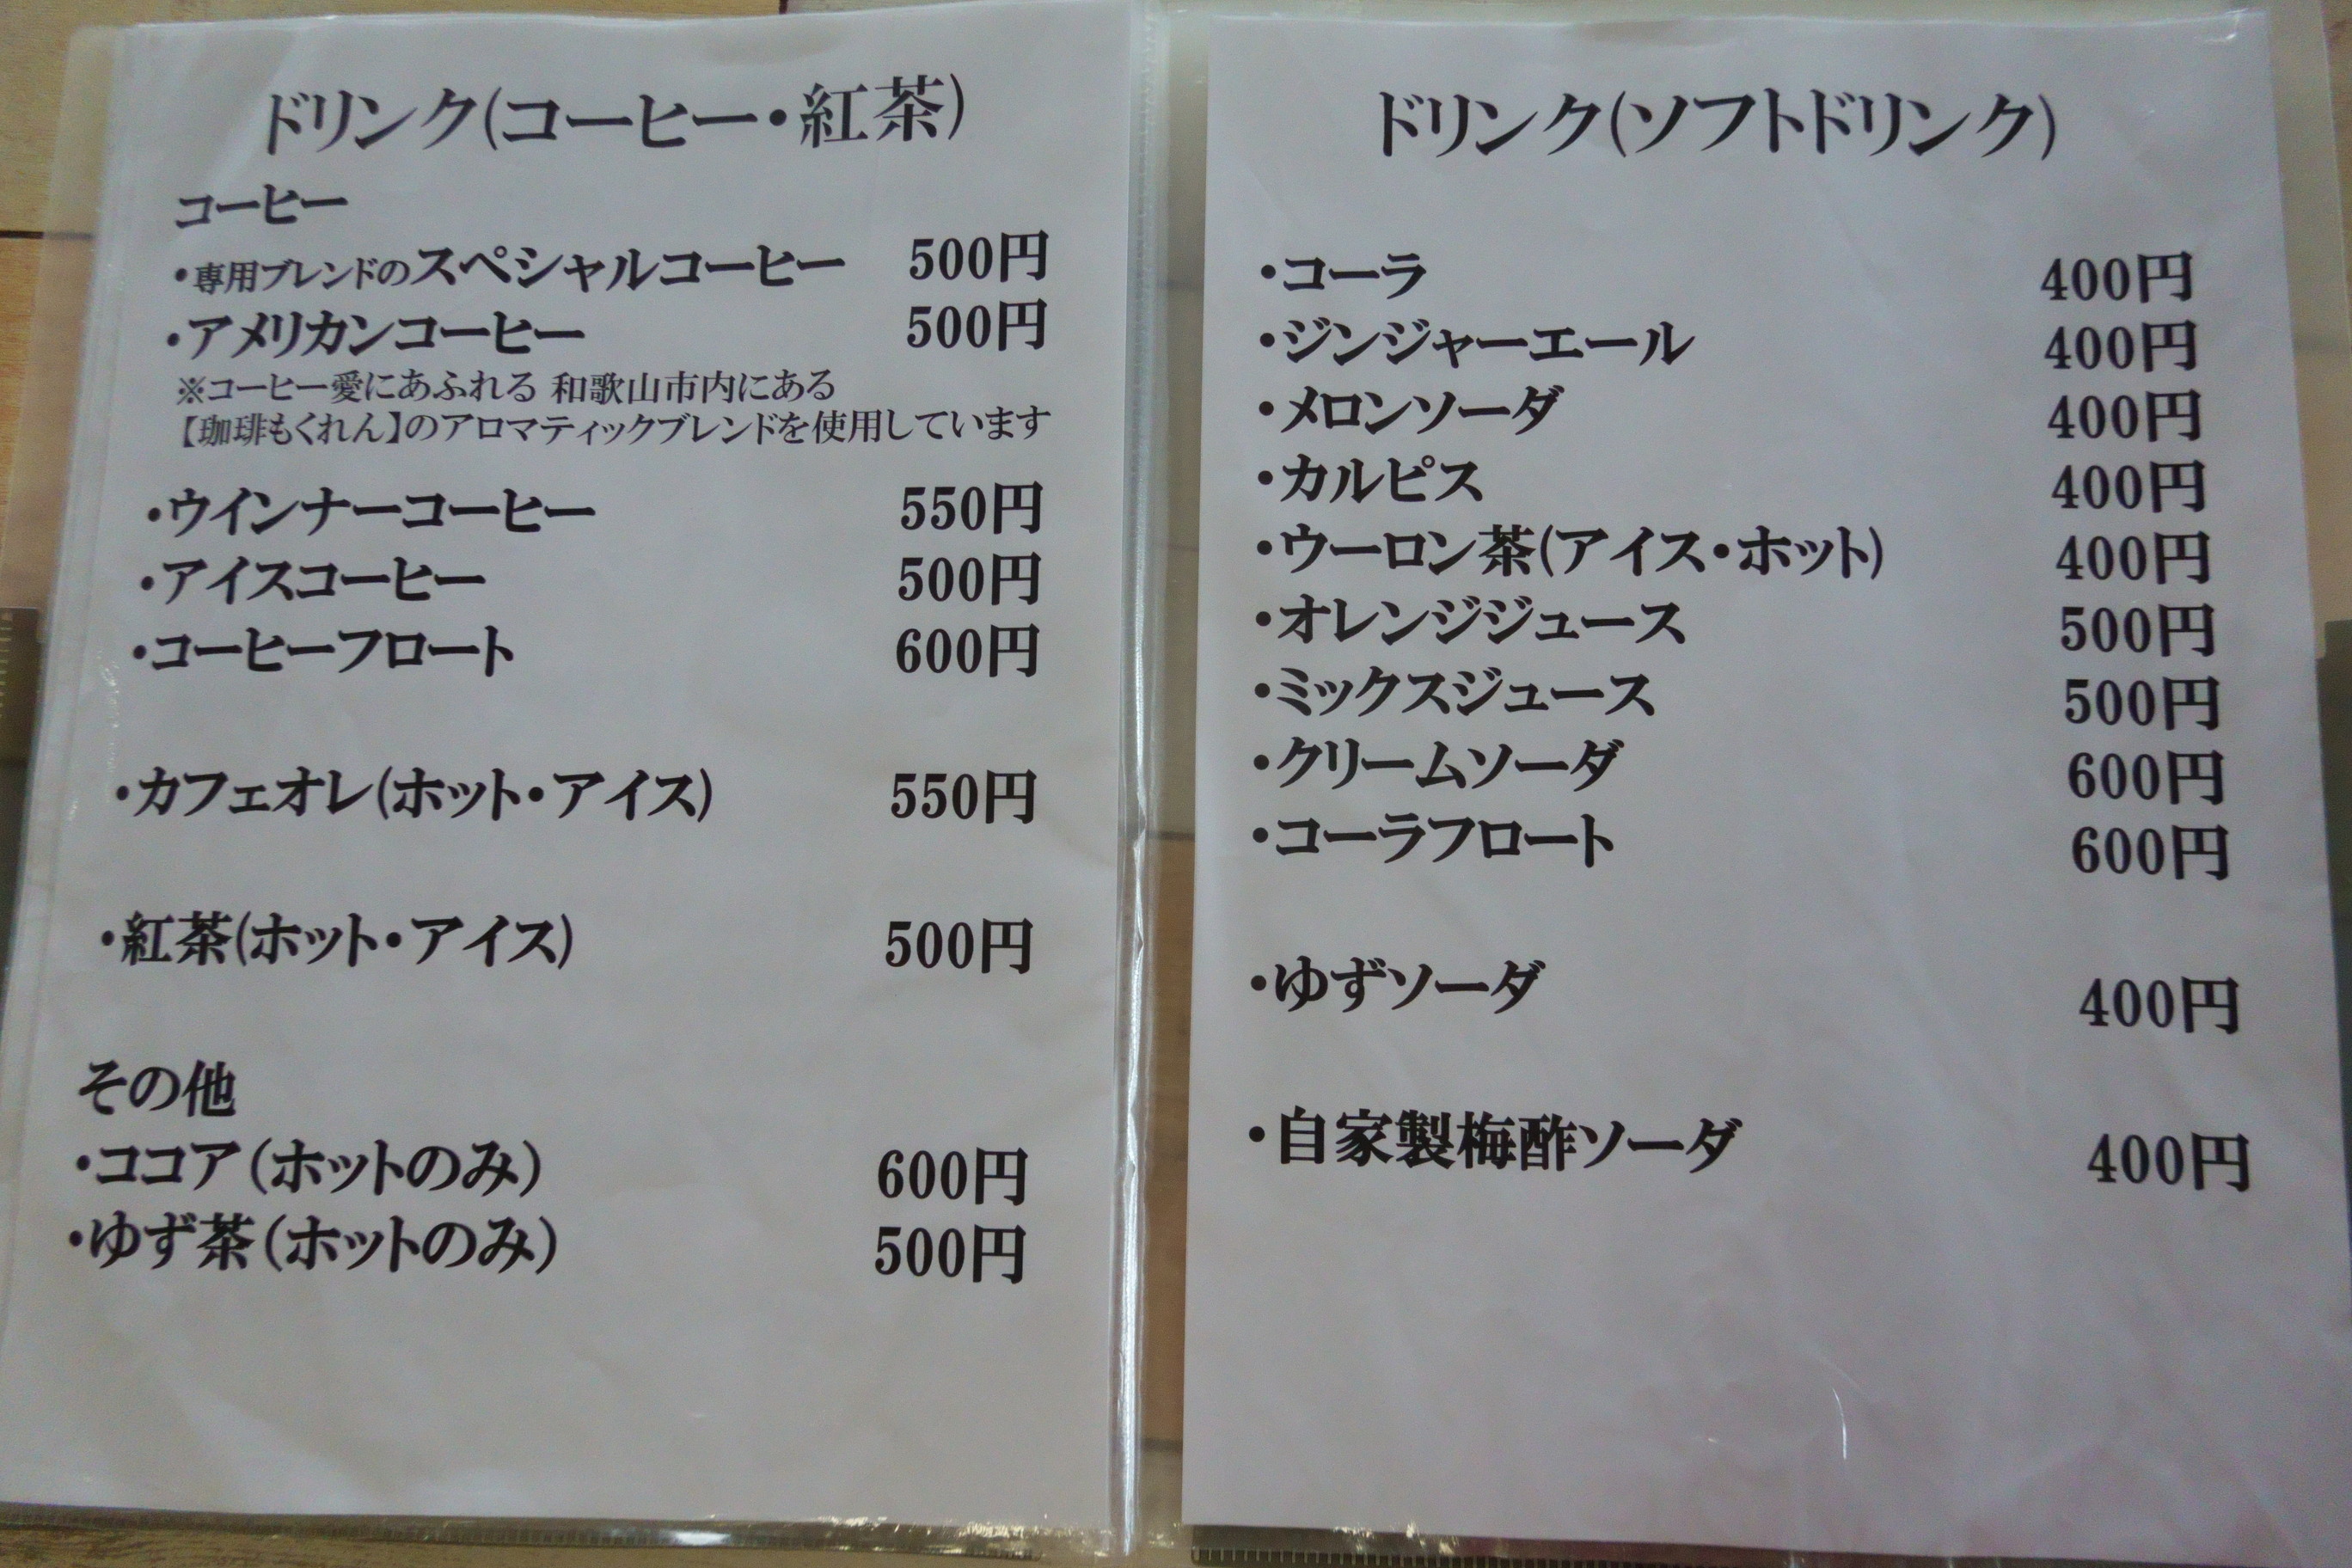 ドリンク(コーヒー・紅茶)
コーヒー
・専用ブレンドのスペシャルコーヒー 500円
・アメリカンコーヒー 500円
※コーヒー愛にあふれる 和歌山市内にある
【珈琲もくれん】のアロマティックブレンドを使用しています
・ウインナーコーヒー 550円
・アイスコーヒー 500円
・コーヒーフロート 600円
・カフェオレ(ホット・アイス) 550円
・紅茶(ホット・アイス) 500円
その他
・ココア(ホットのみ) 600円
・ゆず茶(ホットのみ) 500円
ドリンク(ソフトドリンク)
・コーラ 400円
・ジンジャーエール 400円
・メロンソーダ 400円
・カルピス 400円
・ウーロン茶(アイス・ホット) 400円
・オレンジジュース 500円
・ミックスジュース 500円
・クリームソーダ 600円
・コーラフロート 600円
・ゆずソーダ 400円
・自家製梅酢ソーダ 400円